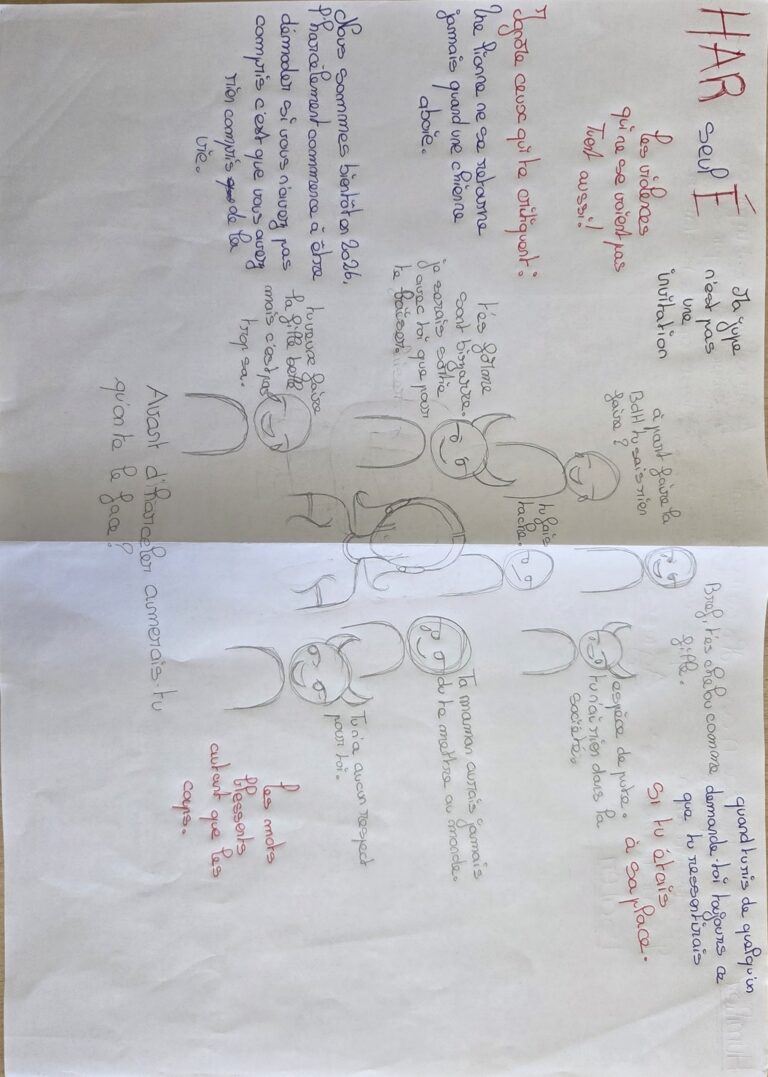 HAR seul É
Les violences
qui ne se voient pas
Tuent aussi!
Ignore ceux qui te critiquent:
Une lionne ne se retourne
jamais quand une chienne
aboie.
Nous sommes bientôt en 2026,
l'harcèlement commence à être
démoder si vous n'avez pas
compris c'est que vous avez
rien compris de la
vie.
Ma jupe
n'est pas
une
invitation
à part faire la
BdH tu sais rien
faire?
t'es formes
sont bizarre.
je serais sortie
avec toi que pour
te baiser.
tu veux faire
la fille belle
mais c'est pas
trop sa.
tu fais
tache.
Avant d'harceler aimerais-tu
qu'on te le face?
Bref, t'es chelou comme
fille.
espèce de pute.
tu n'ai rien dans la
société.
Ta maman aurais jamais
du te mettre au monde.
Tu n'a aucun respect
pour toi.
Les mots
blessents
autant que les
coups.
quand tu ris de quelqu'un
demande-toi toujours ce
que tu ressentirais
Si tu étais
à sa place.